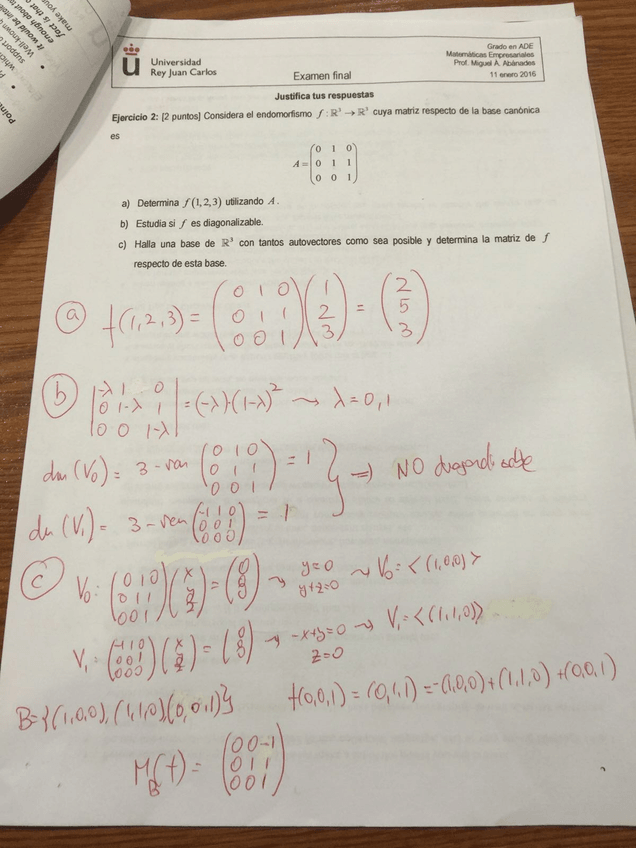 Universidad
Rey Juan Carlos
Examen final
Grado en ADE
Matemáticas Empresariales
Prof. Miguel A. Abánades
11 enero 2016
Justifica tus respuestas
Ejercicio 2: [2 puntos] Considera el endomorfismo f : ℝ³ → ℝ³ cuya matriz respecto de la base canónica
es
A = (0 1 0
0 1 1
0 0 1)
a) Determina f(1,2,3) utilizando A.
b) Estudia si f es diagonalizable.
c) Halla una base de ℝ³ con tantos autovectores como sea posible y determina la matriz de f
respecto de esta base.
a) f(1,2,3) = (0 1 0; 0 1 1; 0 0 1)(1; 2; 3) = (2; 5; 3)
b) |-λ 1 0; 0 1-λ 1; 0 0 1-λ| = (-λ)·(1-λ)² ⇝ λ=0,1
dim (V₀) = 3 - ran (0 1 0; 0 1 1; 0 0 1) = 1 } ⇒ NO diagonalizable
dim (V₁) = 3 - ran (-1 1 0; 0 0 1; 0 0 0) = 1
c) V₀: (0 1 0; 0 1 1; 0 0 1)(x; y; z) = (0; 0; 0) ⇝ y=0 y+z=0 ⇝ V₀=<(1,0,0)>
V₁: (-1 1 0; 0 0 1; 0 0 0)(x; y; z) = (0; 0; 0) ⇝ -x+y=0 z=0 ⇝ V₁=<(1,1,0)>
B={(1,0,0),(1,1,0),(0,0,1)}
f(0,0,1) = (0,1,1) = -(1,0,0)+(1,1,0)+(0,0,1)
M_B(f) = (0 0 -1; 0 1 1; 0 0 1)